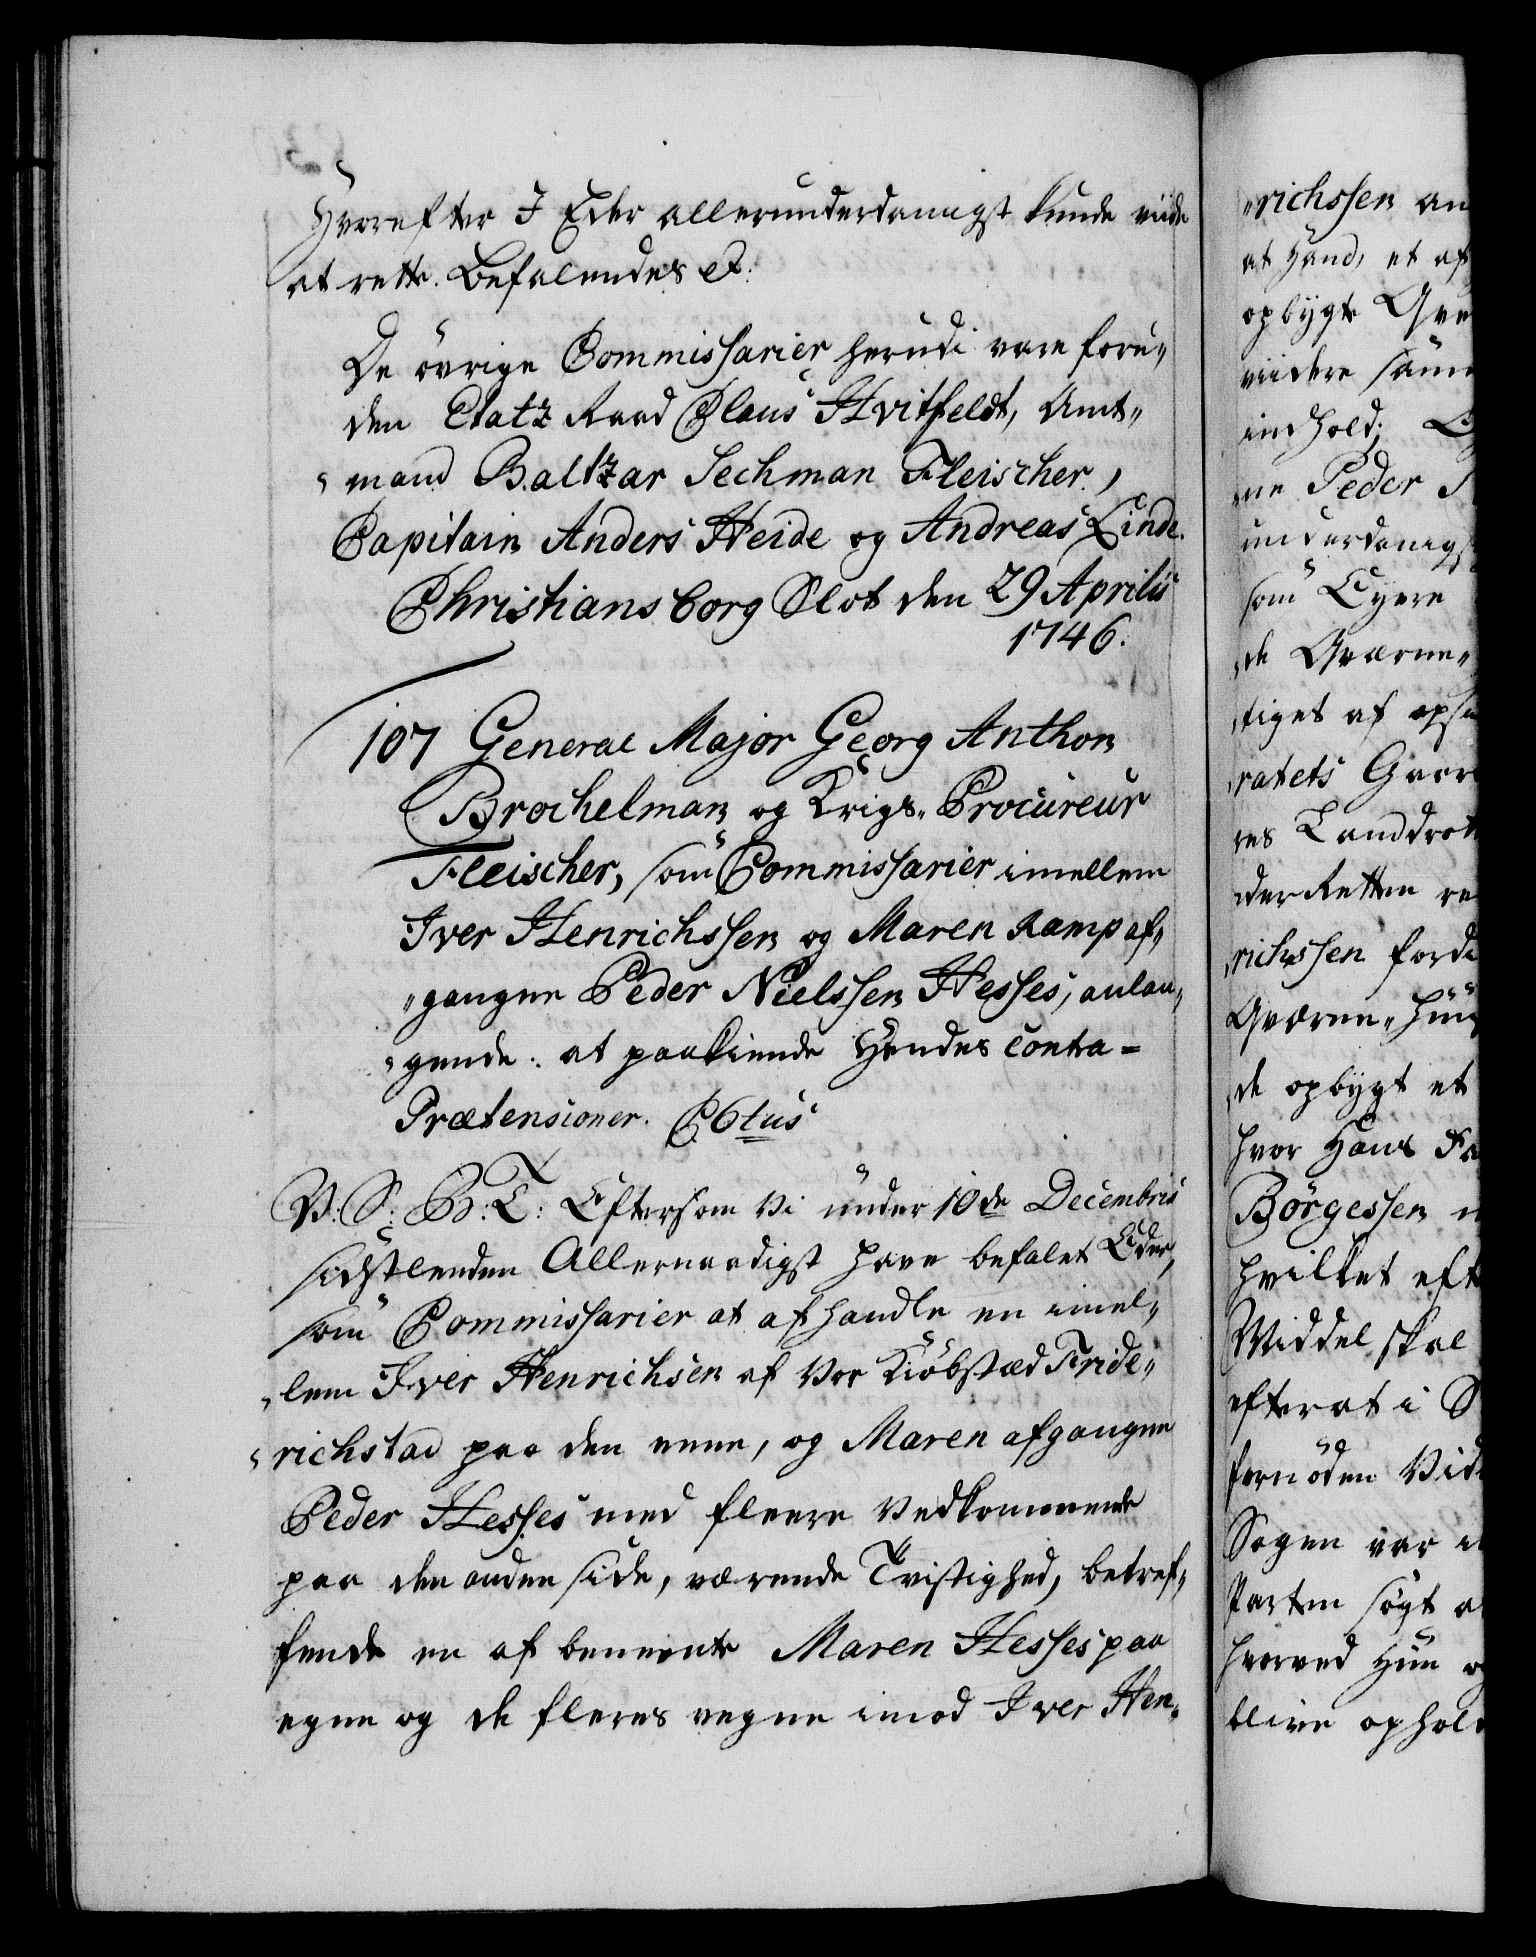 Hvorefter I Eder allerunderdanigst kunde viide
at rette. Befalendes et:
De övrige Commissarier herudi vare foru„
den Etatz Raad Claus Hvitfeldt, Amt„
„mand Baltzar Sechman Fleischer,
Capitain Anders Heide og Andreas Linde.
Christiansborg Slot den 29 Aprilis
1746.
107 General Major Georg Anthon
Brochelman og Krigs„ Procureur
Fleischer, som Commissarier imellem
Iver Henrichssen og Maren Ramp af„
„gangne Peder Nielssen Hesses, anlan„
„gende: at paakiende Hendes contra=
Prætensioner. C6tus
V: S: B: T: Eftersom Vi under 10de Decembris
sidstleeden Allernaadigst have befalet Eder,
som Commissarier at afhandle en imel„
„lem Iver Henrichsen af Vor Kiöbstæd Fride„
„richstad paa den eene, og Maren afgangne
Peder Hesses med fleere Vedkommende
paa den anden side, værende Tvistighed, betref„
fende en af bemeente Maren Hesses paa
egne og de fleres vegne imod Iver Hen„
„richssen an
at Hand, et af
opbygte Qve
viidere sam
indhold;
ne Peder
underdanigs
som Eyere
de Qværne„
tiget af ops
ratets Gaar
res Landdrot
der Retten re
richssen forde
Qværne„ Huus
de opbygt et
hvor Hans Fa
Börgessen
hvilket eft
Middel skal
efterat i S
fornöden Vid
Sagen var i
Parten sögt a
hvorved Hun o
blive ophol